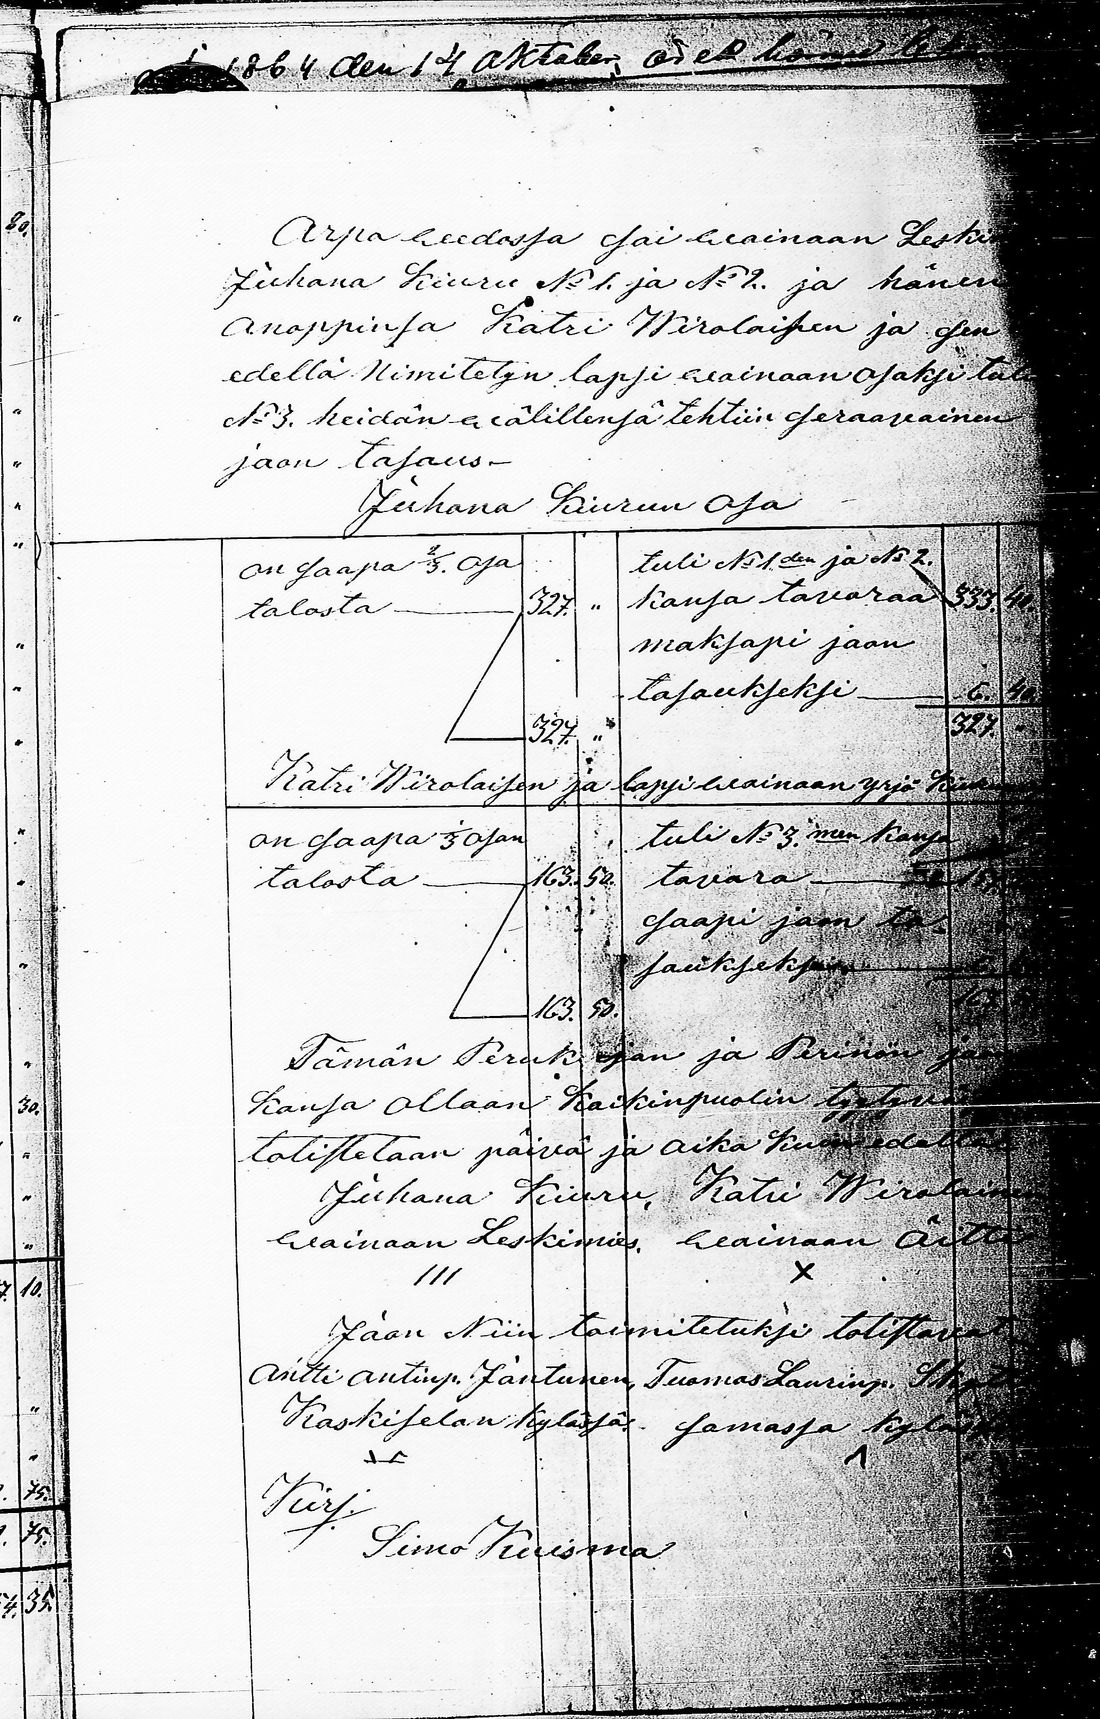 1864 den 14 Oktober,
Arpa weedossa sai wainaan
Juhana Kiuru No 1. ja No 2. ja hänen
Anoppinsa Katri Wirolaisen ja sen
edellä Nimitetyn lapsi wainaan osaksi
No 3. heidän wälillensä tehtiin seraawainen
jaon tasaus—
Juhana Kiurun osa
on saapa 2/3. osa
talosta — 327. "
327. "
tuli No 1. den ja No 2.
kansa tavaraa 333. 40.
maksapi jaon
tasaukseksi — 6. 40.
327. "
Katri Wirolaisen ja lapsi wainaan yrjö
on saapa 1/3 osan
talosta — 163. 50.
163. 50.
tuli No 3. men kansa
tavara —
saapi jaon ta-
saukseksi
Tämän Peruk ojan ja Perinön
kansa ollaan kaikinpuolin
totistetaan päivä ja aika kuin edellä
Juhana Kiuru, Katri Wirolainen
wainaan Leskimies. wainaan Äitti
III X
Jaon Niin toimitetuksi totistavat
Antti Antinp. Jäntunen, Tuomas Laurinp.
Kaskiselan kylässä. samassa
Kirj.
Simo Kuisma
80.
30.
10.
75.
75.
35.